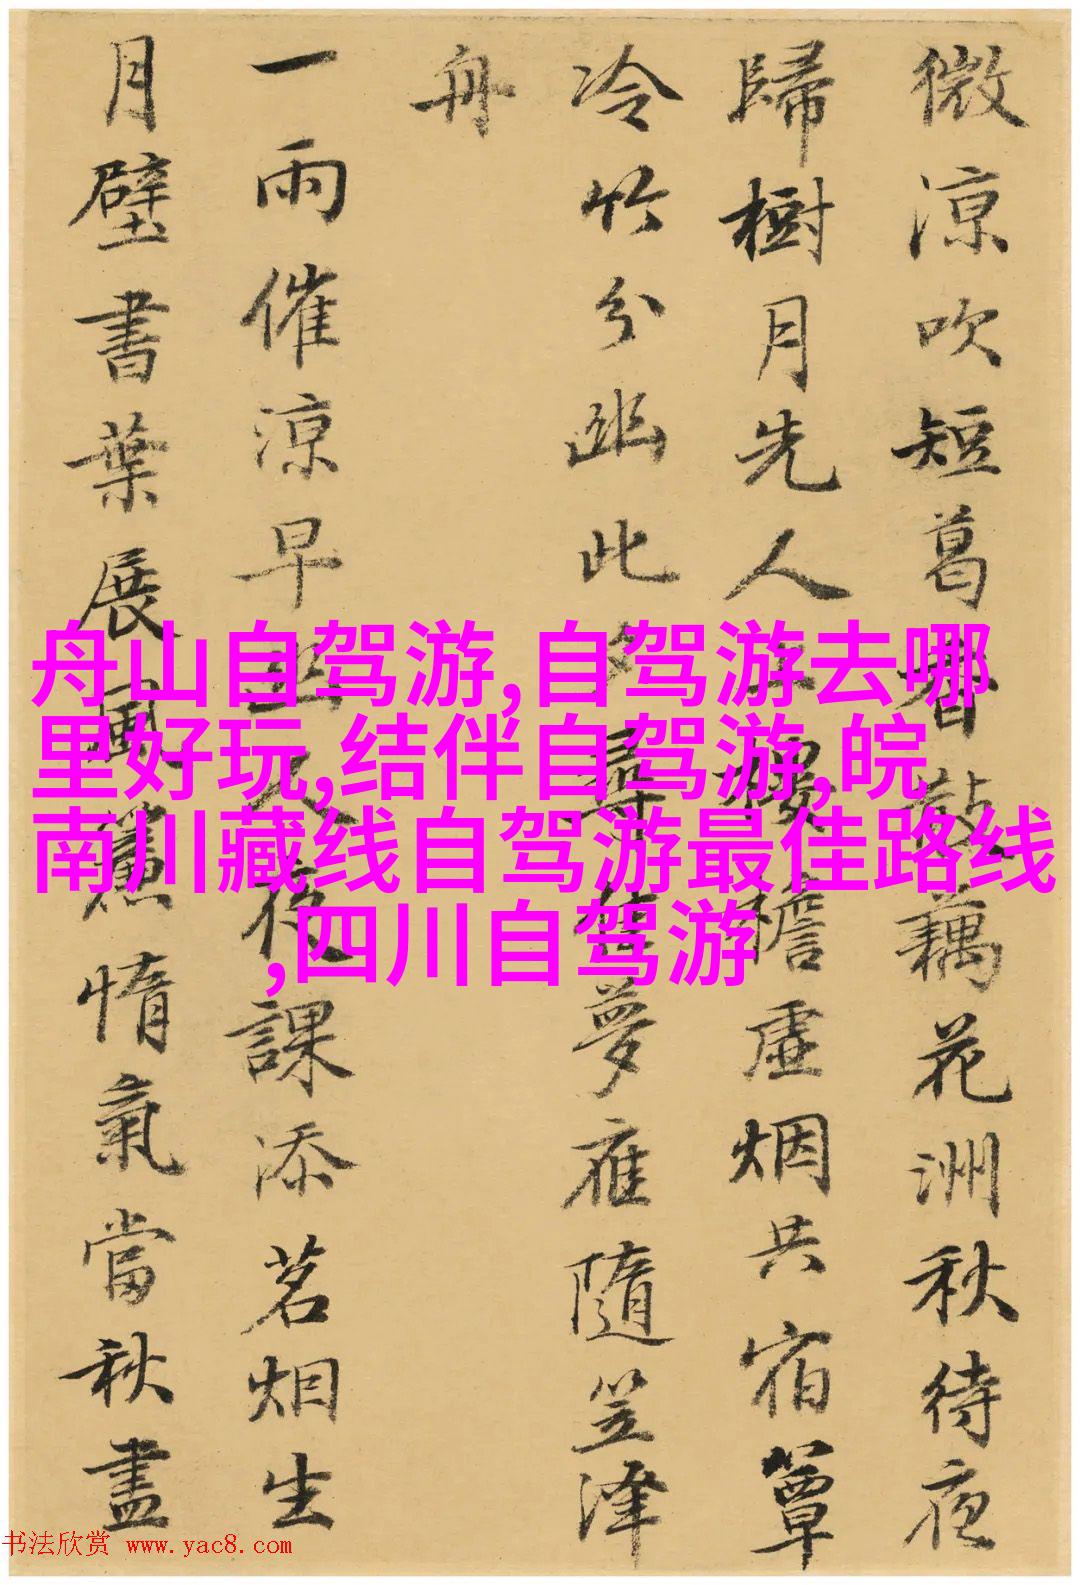 微涼吹短葛看敲藕花洲秋待夜
歸樹月先人上樓檐虛烟共宿簟
冷竹分幽此夕尋舊夢雁隨笠澤
舟
一雨催涼早幽人夜課添茗烟生
月壁書葉展風簾惰氣當秋盡
舟山自驾游,自驾游去哪
里好玩,结伴自驾游,皖
南川藏线自驾游最佳路线
,四川自驾游
书法欣赏 www.yac8.com